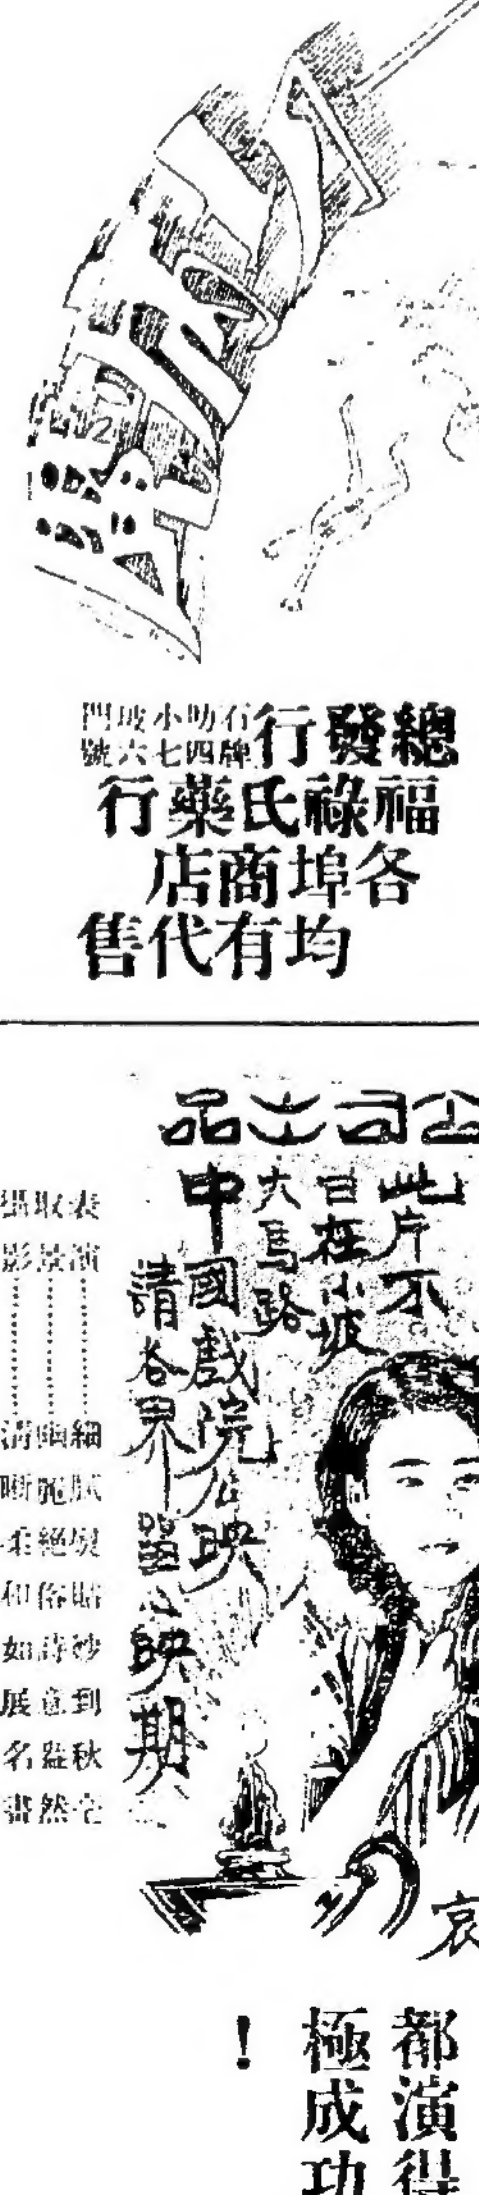 總發行
石叻小坡門
牌四七六號
福祿氏藥行
各埠商店
均有代售
公司出品
此片不
日在小坡
大馬路
中國戲院公映
請各界留心映期
表演………細膩熨貼妙到秋毫
取景………幽麗絕俗詩意盎然
攝影………清晰柔和如展名畫
哀
都演得
極成功
！